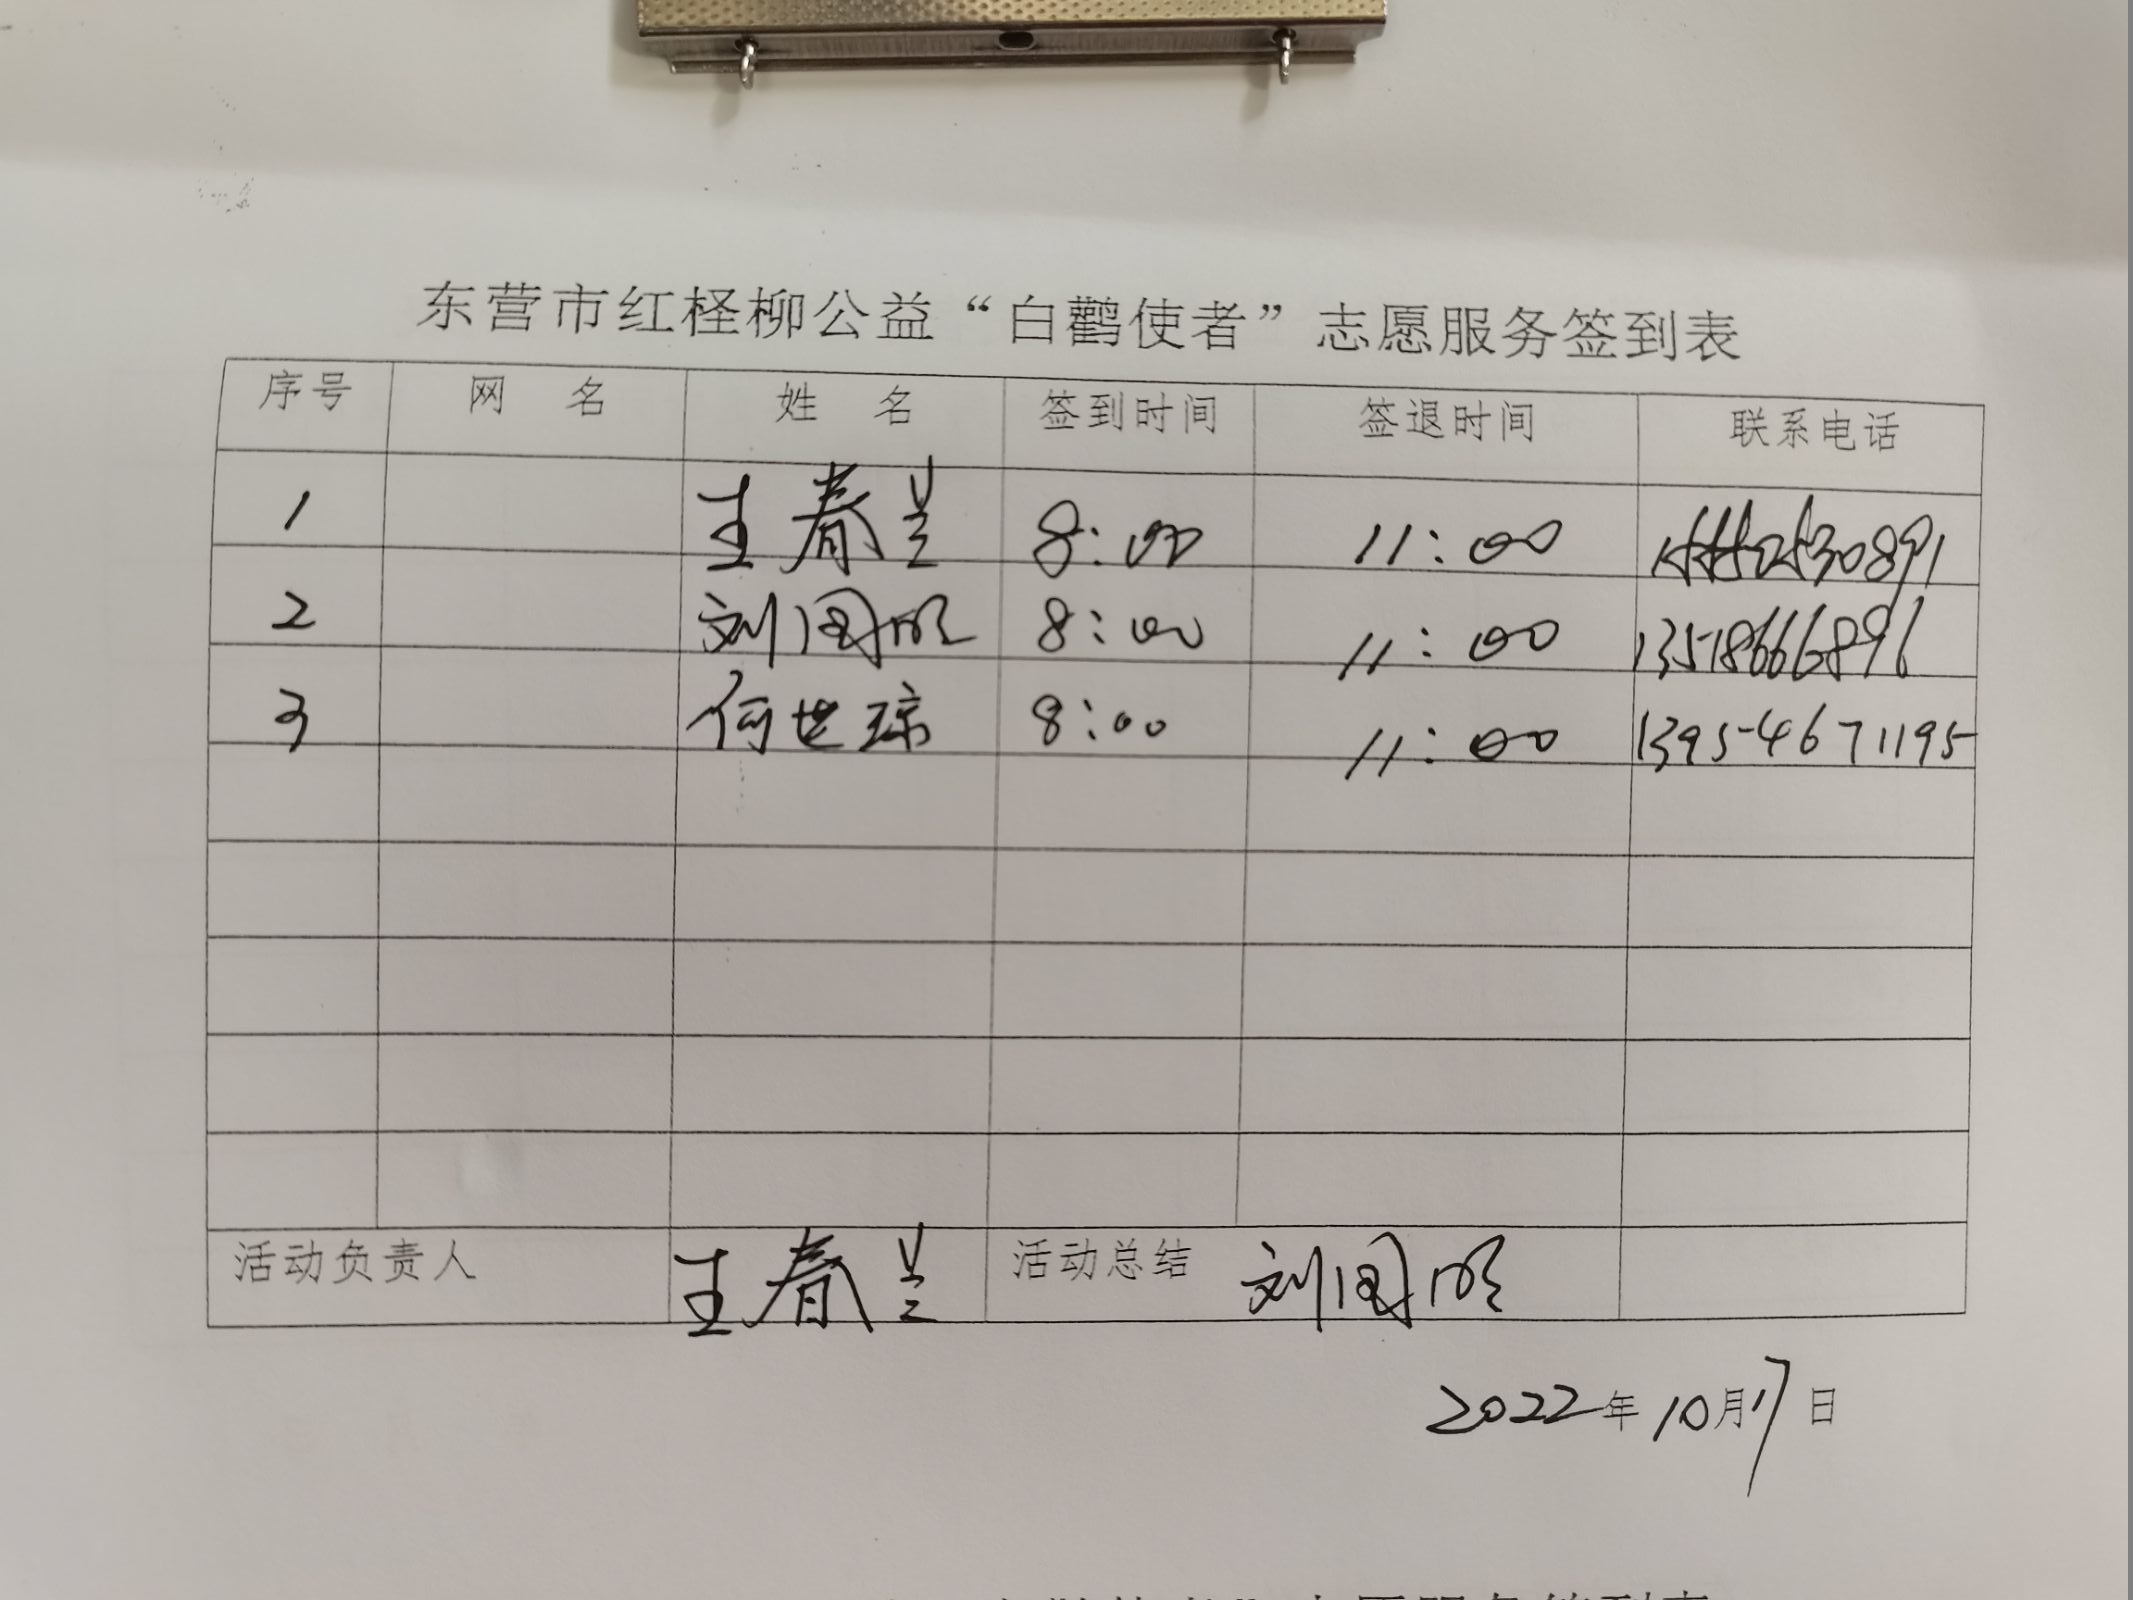 东营市红柽柳公益“白鹳使者”志愿服务签到表
序号 网 名 姓 名 签到时间 签退时间 联系电话
1 王春兰 8:00 11:00
2 刘国明 8:00 11:00 13518666896
3 何世琼 8:00 11:00 13954671195
活动负责人 王春兰 活动总结 刘国明
2022年10月17日
志愿服务签到表